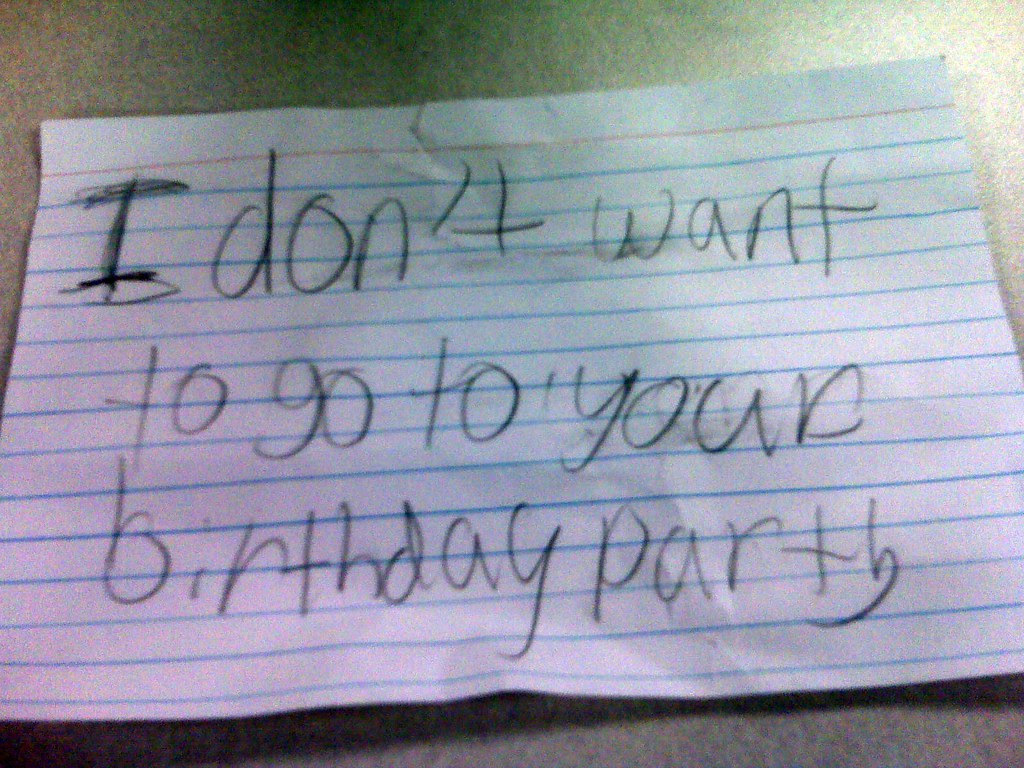 I don't want
to go to your
birthday party